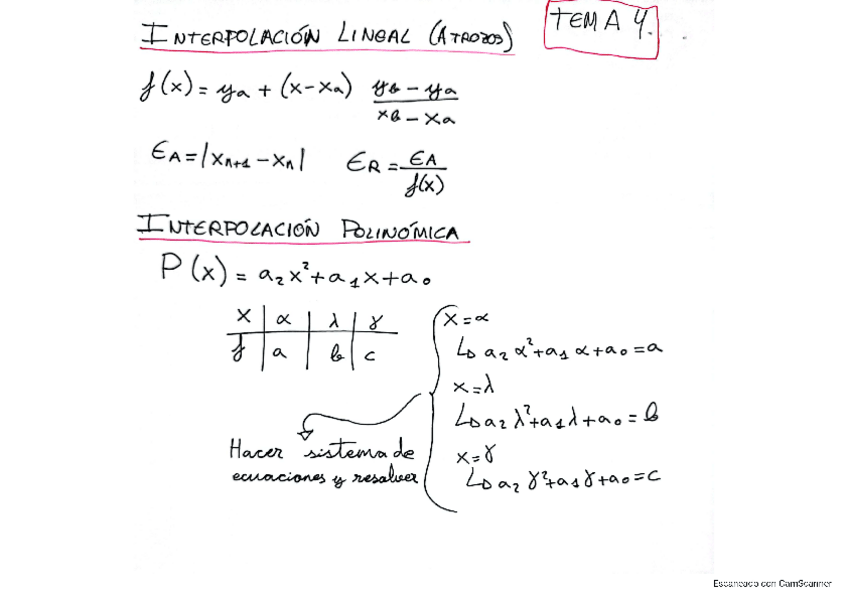 TEMA 4.
INTERPOLACIÓN LINEAL (A TROZOS)
f(x) = ya + (x-xa) (yb - ya)/(xb - xa)
EA = |xn+1 - xn|   ER = EA/f(x)
INTERPOLACIÓN POLINÓMICA
P(x) = a2x² + a1x + a0
x | α | λ | γ
f | a | b | c
x = α
↳ a2 α² + a1 α + a0 = a
x = λ
↳ a2 λ² + a1 λ + a0 = b
x = γ
↳ a2 γ² + a1 γ + a0 = c
Hacer sistema de
ecuaciones y resolver
Escaneado con CamScanner